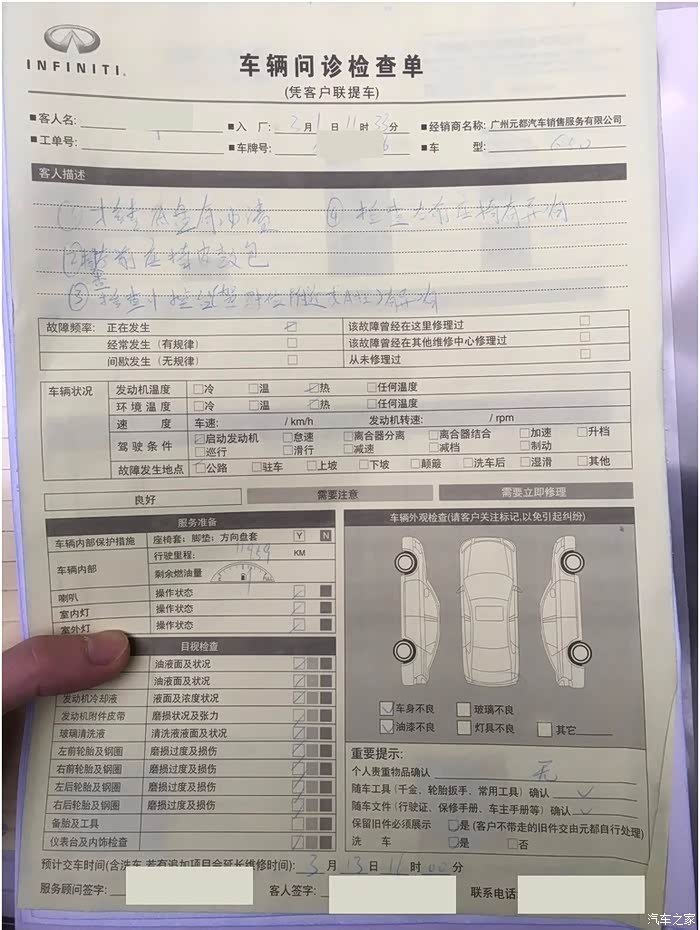 INFINITI.
车辆问诊检查单
(凭客户联提车)
■客人名: ■入 厂: 3月1日11时33分 ■经销商名称: 广州元都汽车销售服务有限公司
■工单号: ■车牌号: ■车 型:
客人描述
① 检查底盘有油渍 ④ 检查右前座椅有异响
② 前座椅皮鼓包
③ 检查 有异响
故障频率: 正在发生 该故障曾经在这里修理过
经常发生(有规律) 该故障曾经在其他维修中心修理过
间歇发生(无规律) 从未修理过
车辆状况 发动机温度 冷 温 热 任何温度
环境温度 冷 温 热 任何温度
速 度 车速: / km/h 发动机转速: / rpm
驾驶条件 启动发动机 怠速 离合器分离 离合器结合 加速 升档
巡行 滑行 减速 减档 制动
故障发生地点 公路 驻车 上坡 下坡 颠簸 洗车后 湿滑 其他
良好 需要注意 需要立即修理
服务准备
车辆内部保护措施 座椅套; 脚垫; 方向盘套 Y N
车辆内部 行驶里程: KM
剩余燃油量
喇叭 操作状态
室内灯 操作状态
室外灯 操作状态
目视检查
油液面及状况
油液面及状况
发动机冷却液 液面及浓度状况
发动机附件皮带 磨损状况及张力
玻璃清洗液 清洗液液面及状况
左前轮胎及钢圈 磨损过度及损伤
右前轮胎及钢圈 磨损过度及损伤
左后轮胎及钢圈 磨损过度及损伤
右后轮胎及钢圈 磨损过度及损伤
备胎及工具
仪表台及内饰检查
车辆外观检查(请客户关注标记,以免引起纠纷)
车身不良 玻璃不良
油漆不良 灯具不良 其它
重要提示:
个人贵重物品确认 无
随车工具(千金、轮胎扳手、常用工具)确认
随车文件(行驶证、保修手册、车主手册等)确认
保留旧件必须展示 是(客户不带走的旧件交由元都自行处理)
洗 车 是 否
预计交车时间(含洗车,若有追加项目会延长维修时间): 3月13日11时00分
服务顾问签字: 客人签字: 联系电话
汽车之家